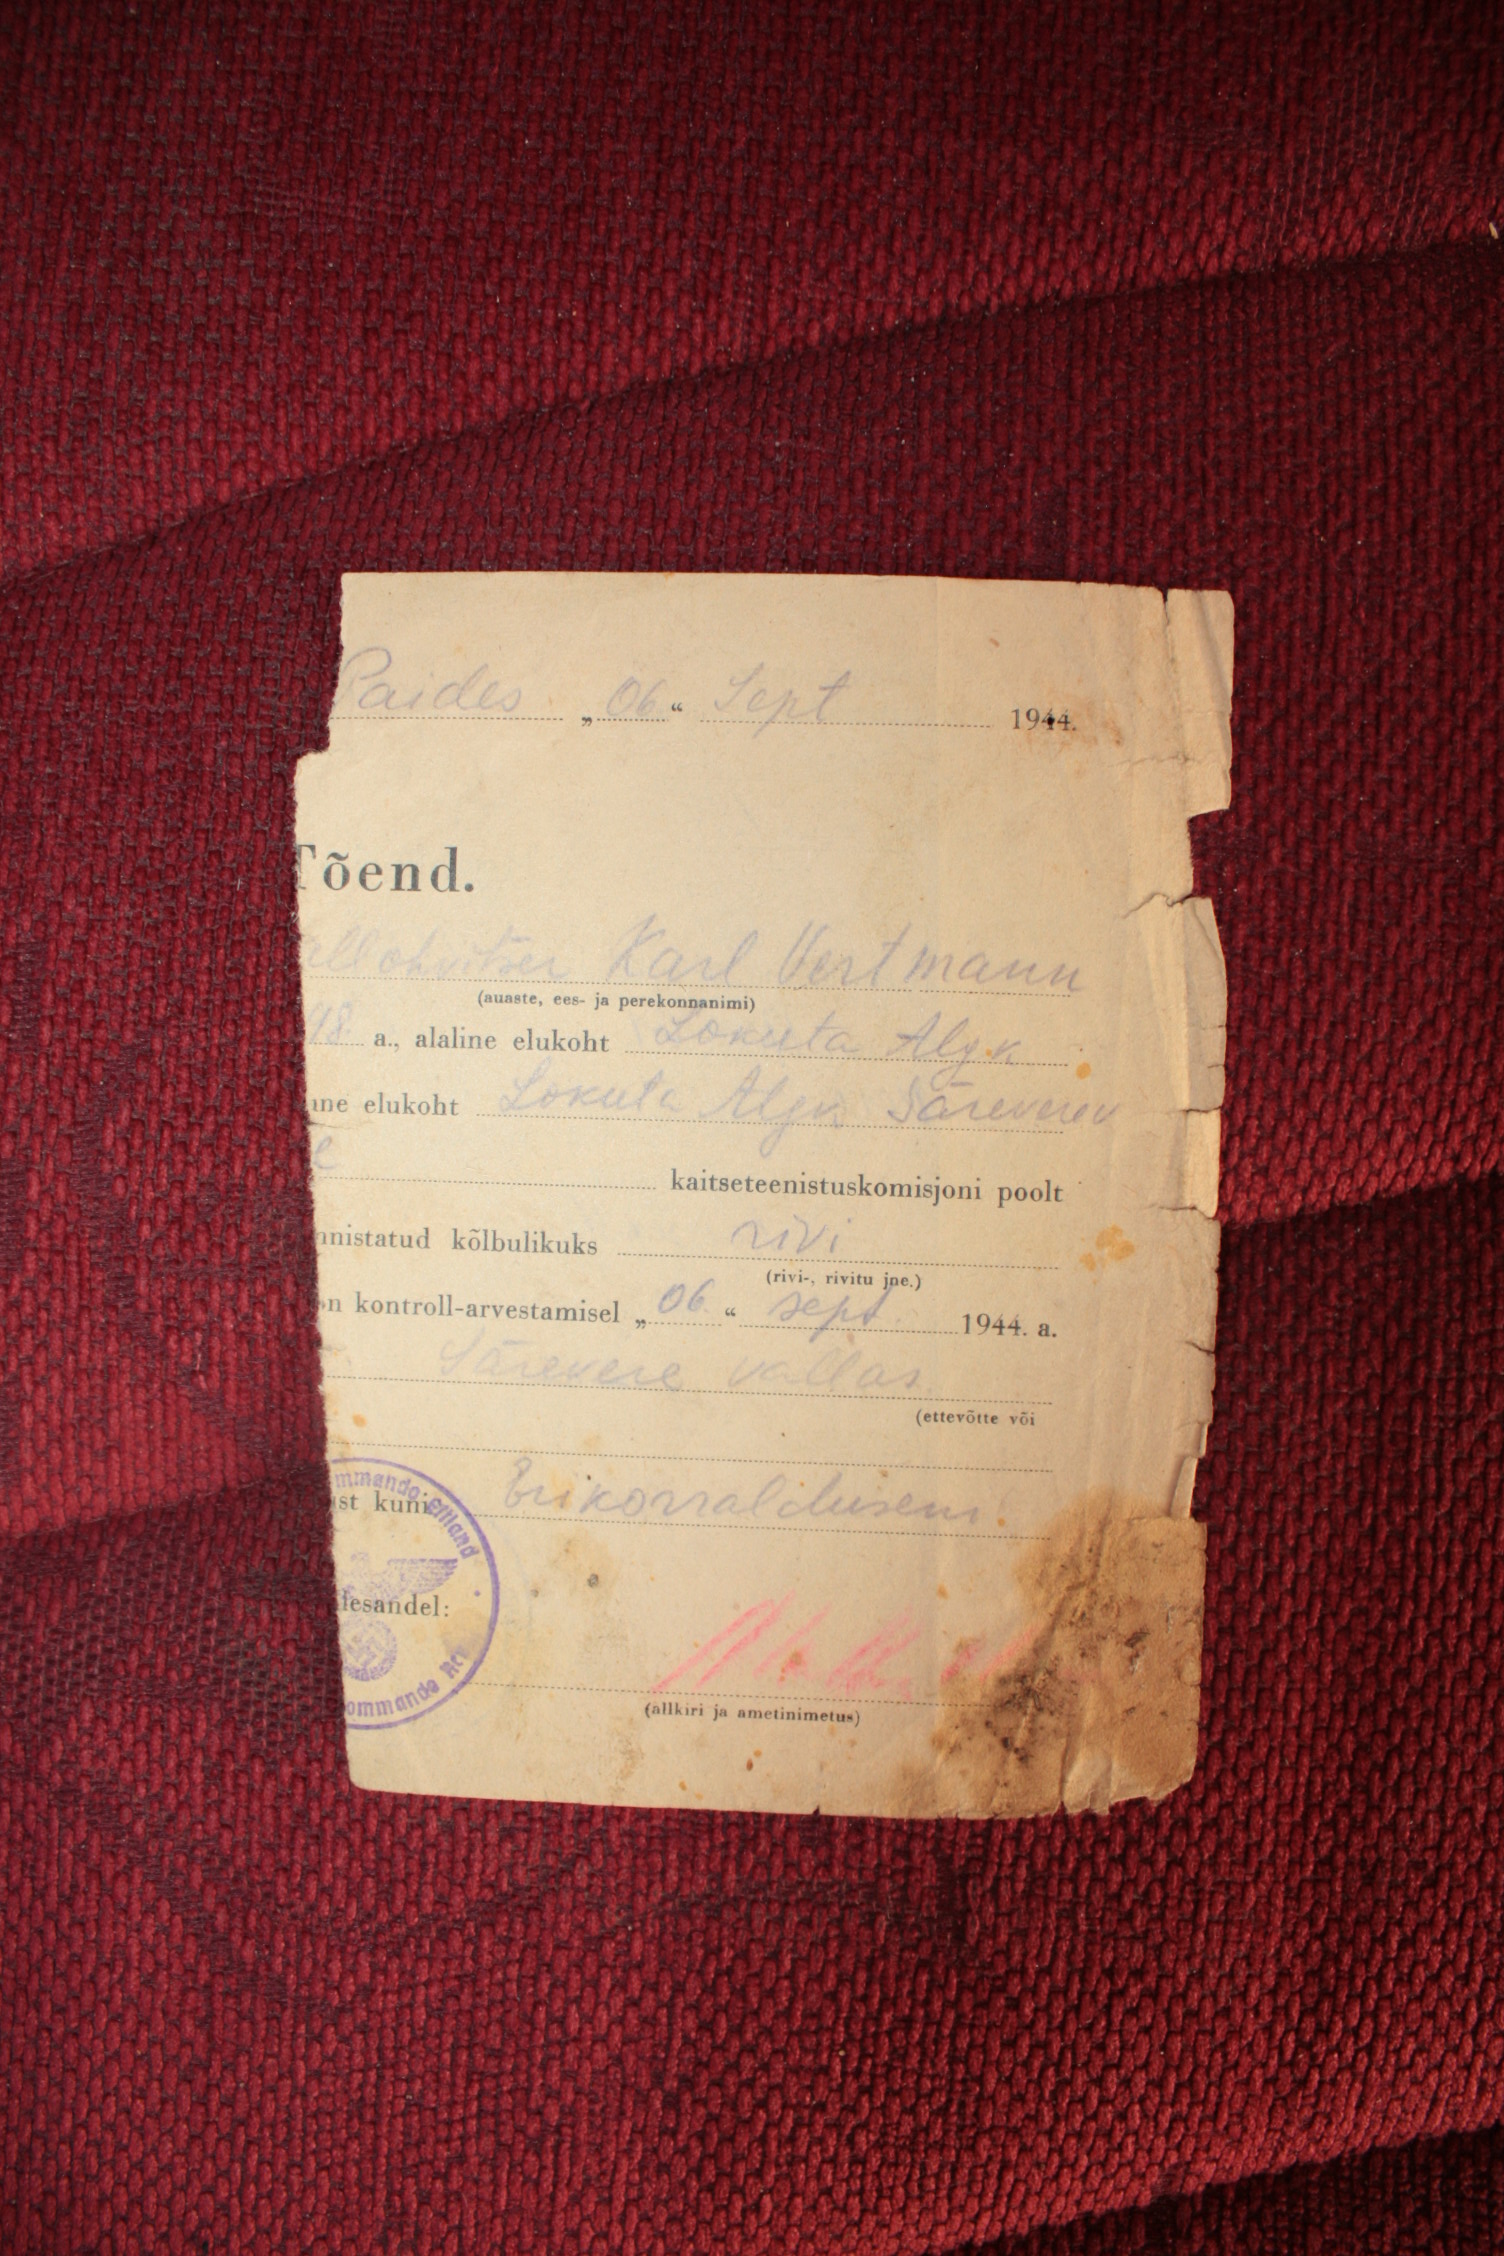 Paides „06“ Sept 1944.
Tõend.
allohvitser Karl Vertmann
(auaste, ees- ja perekonnanimi)
98 a., alaline elukoht Lokuta Algk
ne elukoht Lokuta Algk Särevere v
e kaitseteenistuskomisjoni poolt
nnistatud kõlbulikuks rivi
(rivi-, rivitu jne.)
on kontroll-arvestamisel „06.“ sept. 1944. a.
Särevere vallas
(ettevõtte või
st kuni Erikorralduseni.
lesandel:
(allkiri ja ametinimetus)
mmando Estland
ommando